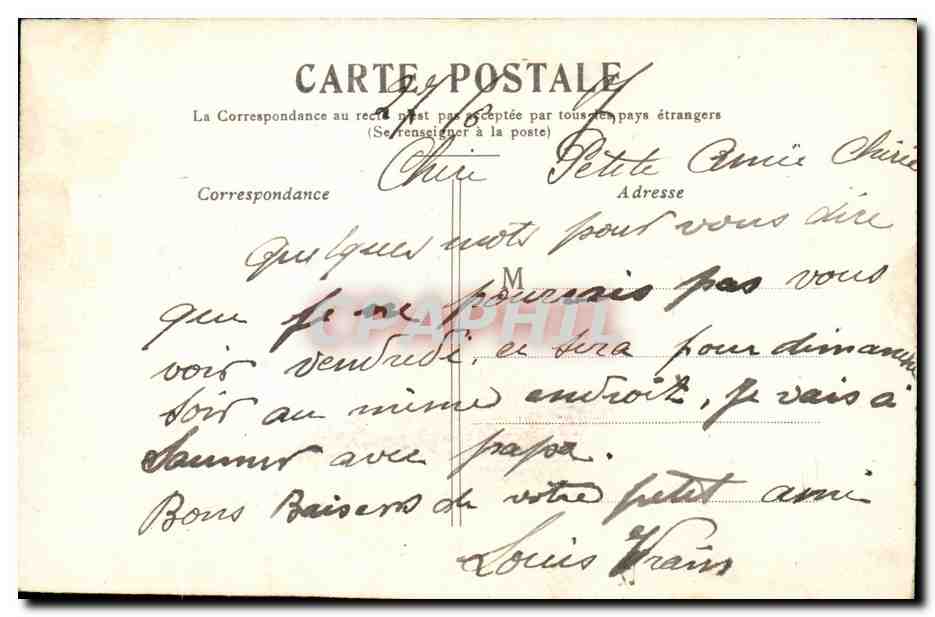 CARTE POSTALE
La Correspondance au recto n'est pas acceptée par tous les pays étrangers
(Se renseigner à la poste)
Petite Amie Chérie
Correspondance
Adresse
quelques mots pour vous dire
M
que je ne pourrais pas vous
voir vendredi, ce sera pour dimanche
soir au même endroit, je vais à
Saumur avec papa.
Bons Baisers de votre petit ami
Louis
CPAPHIL